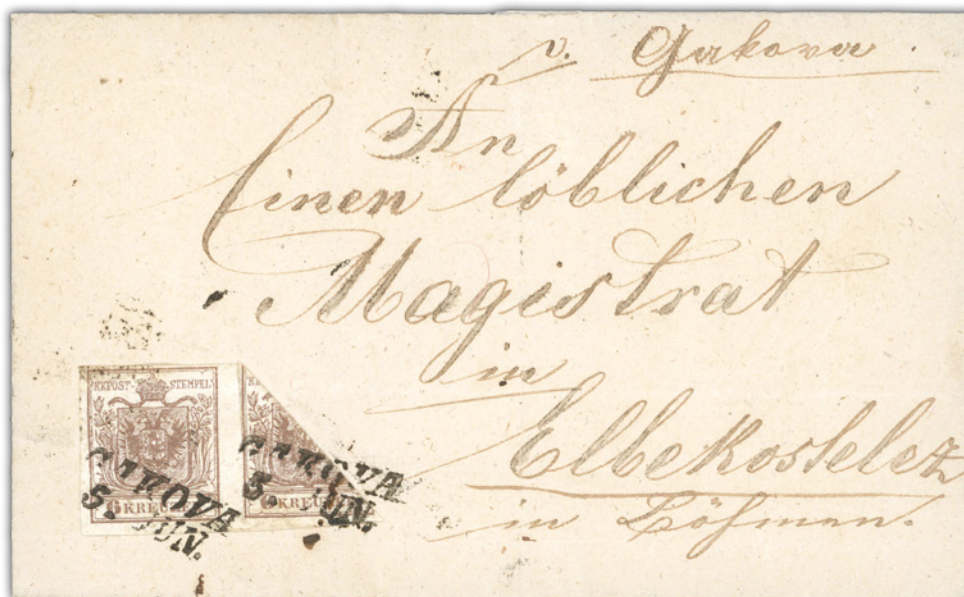 v. Gakova.
An
Einen löblichen
Magistrat
in
Elbekosteletz
in Böhmen.
KKPOST-STEMPEL
6 KREU
GAKOVA
5. JUN.
KK
6 KREU
GAKOVA
5. JUN.